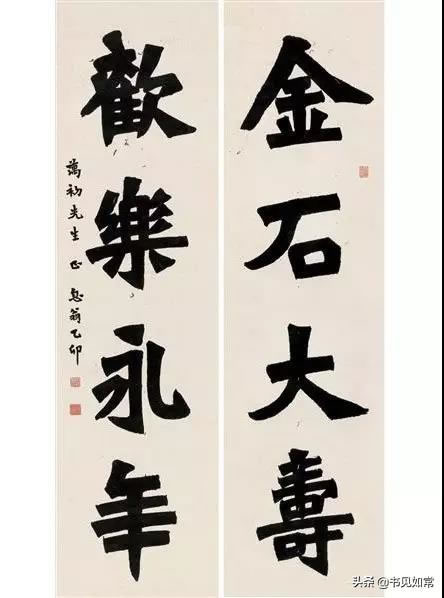 金石大壽
歡樂永年
藹初先生正 息翁乙卯
头条@书见如常